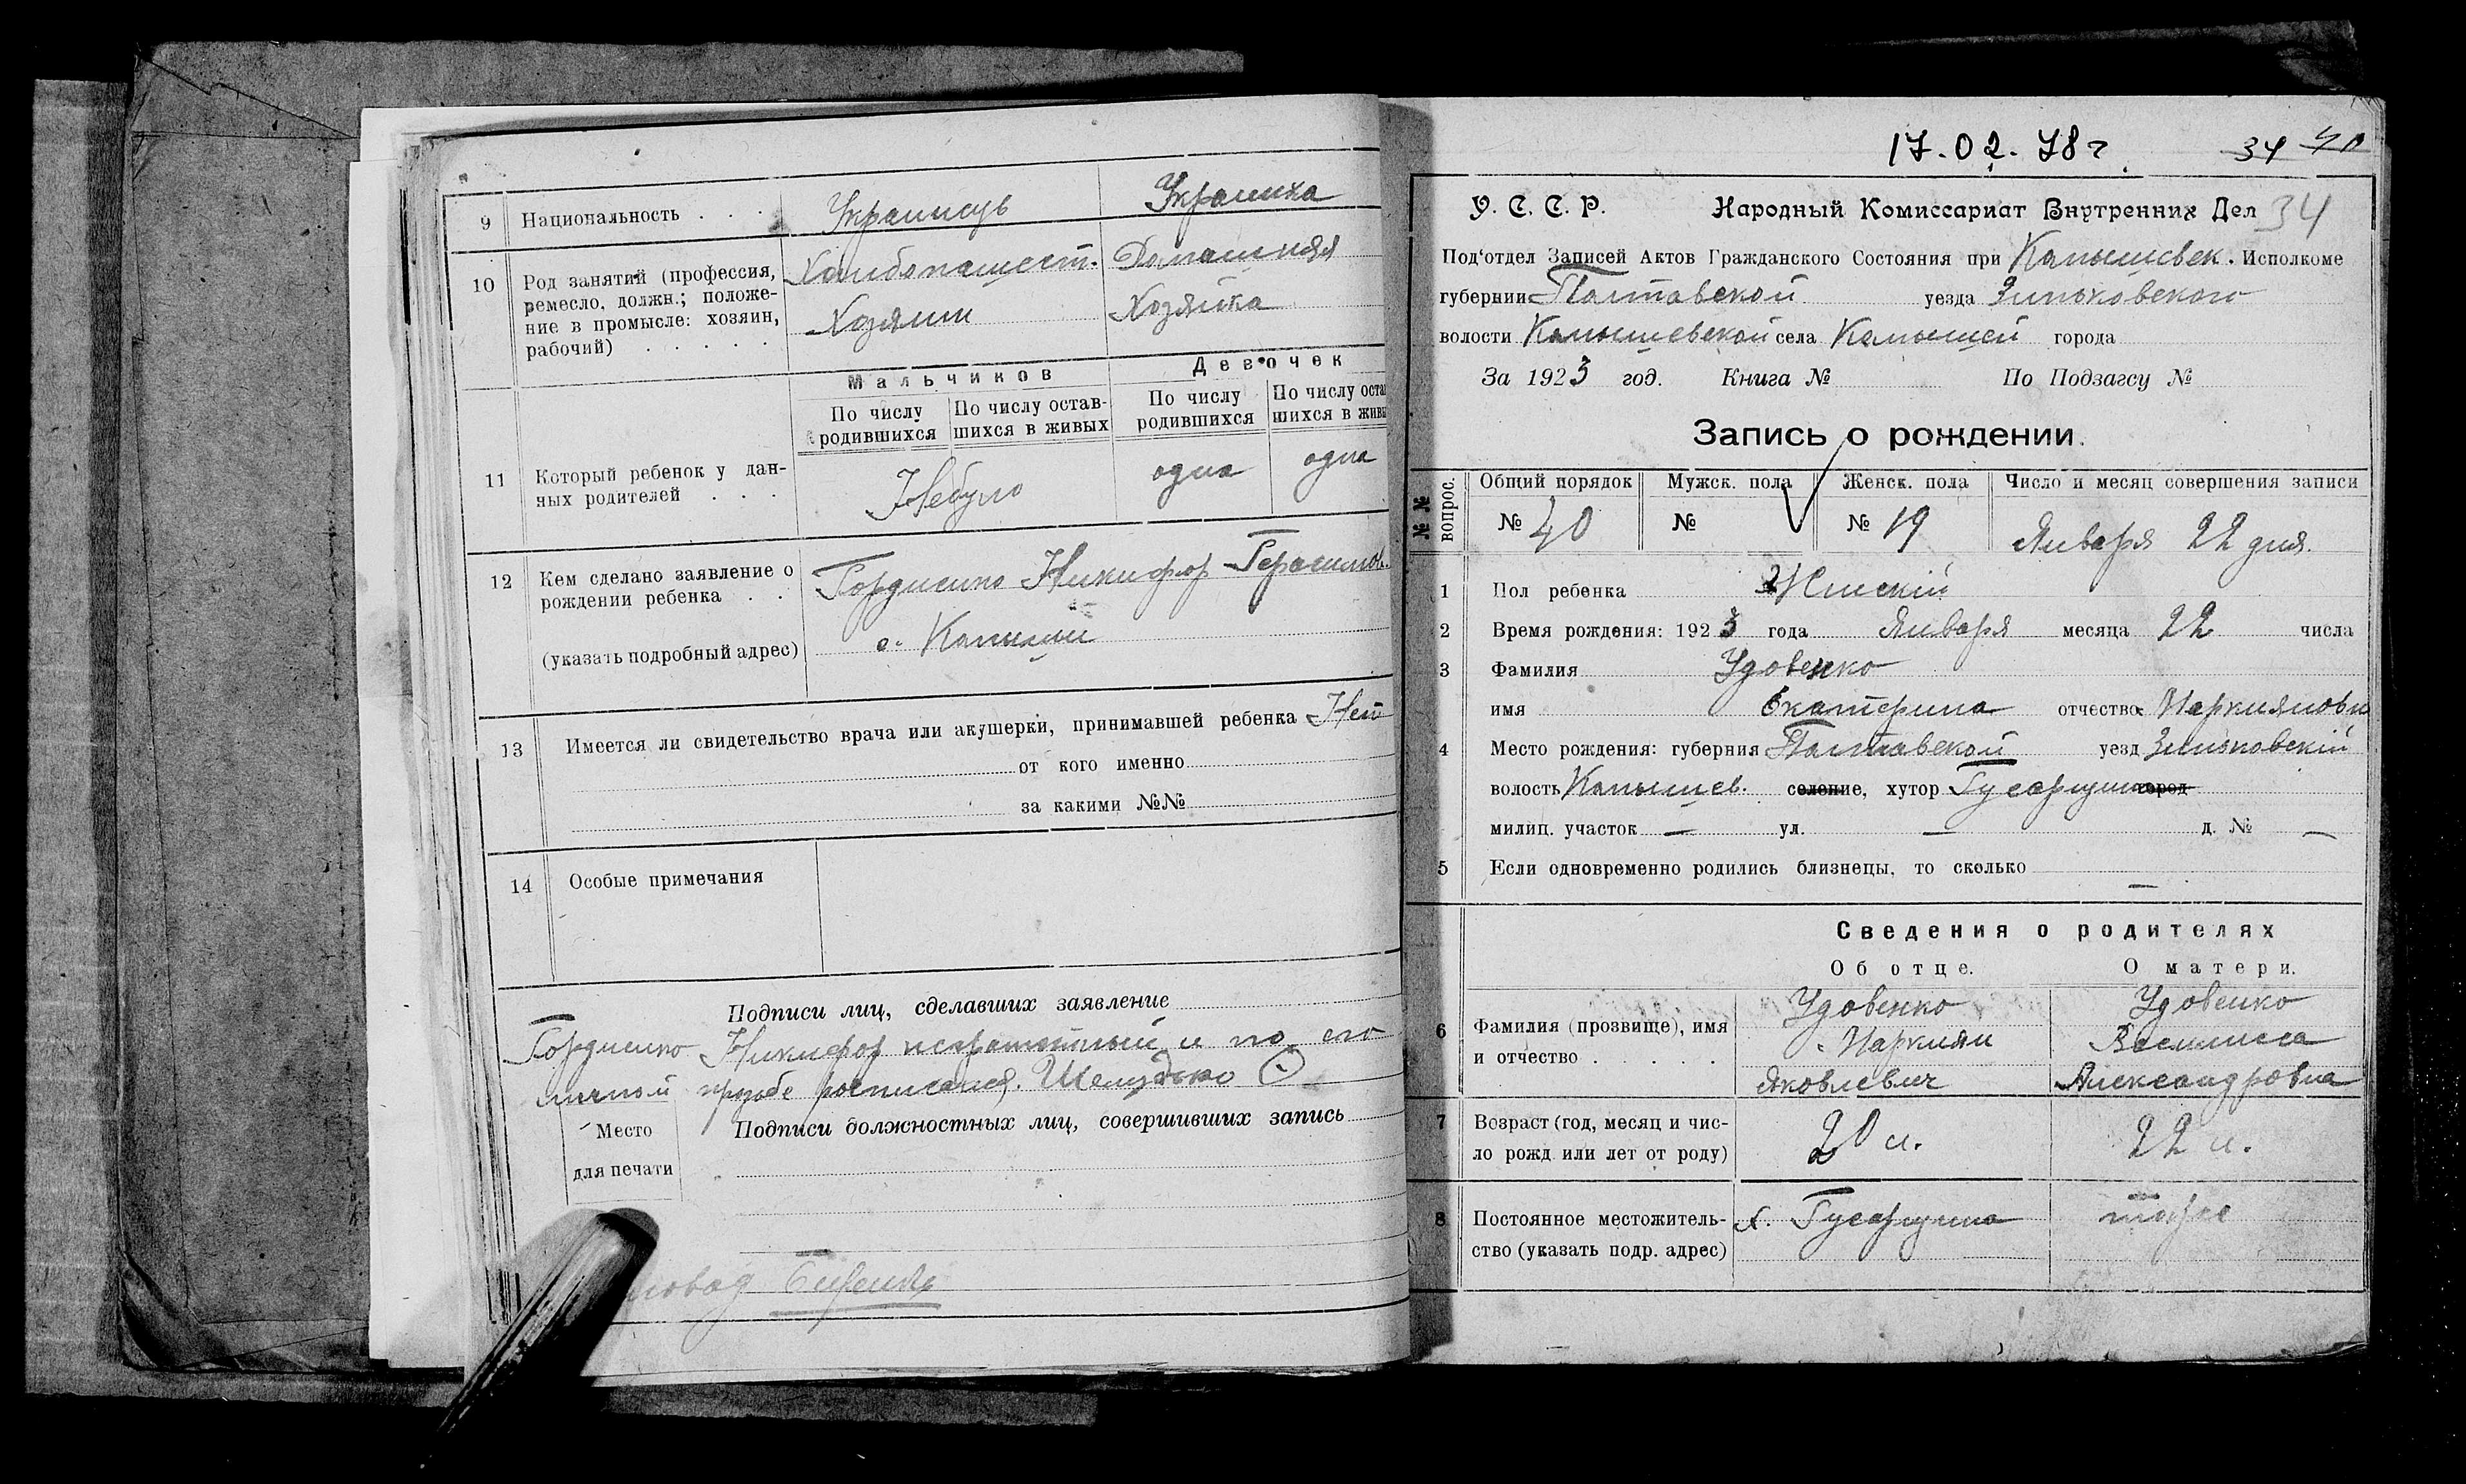 9 Национальность . . . Украинець Украинка
10 Род занятий (профессия, Хлибопашест. Домашняя
ремесло, должн.; положе-
ние в промысле: хозяин, Хозяин Хозяйка
рабочий) . . . . .
Мальчиков Девочек
По числу родившихся По числу остав-шихся в живых По числу родившихся По числу оста шихся в живы
11 Который ребенок у дан-
ных родителей . . . Небуло одна одна
12 Кем сделано заявление о
рождении ребенка . . Гордиенко Никифор Герасимов.
(указать подробный адрес) с. Камыши
13 Имеется ли свидетельство врача или акушерки, принимавшей ребенка Нет
от кого именно
за какими №№
14 Особые примечания
Подписи лиц, сделавших заявление
Гордиенко Никифор неграмотный и по его
личной прозбе росписался. Шелудько
Место
для печати
Подписи должностных лиц, совершивших запись
17.02.78г 34 40
У. С. С. Р. Народный Комиссариат Внутренних Дел 34
Под'отдел Записей Актов Гражданского Состояния при Камышевск. Исполкоме
губернии Полтавской уезда Зиньковского
волости Камышевской села Камышей города
За 1923 год. Книга № По Подзагсу №
Запись о рождении.
№№ вопрос. Общий порядок Мужск. пола Женск. пола Число и месяц совершения записи
№ 40 № № 19 Января 22 дня.
1 Пол ребенка Женскій
2 Время рождения: 1923 года Января месяца 22 числа
3 Фамилия Удовенко
имя Екатерина отчество Маркияновна
4 Место рождения: губерния Полтавской уезд Зиньковскій
волость Камышев. селение, хутор Гусарщина город
милиц. участок — ул. — д. № —
5 Если одновременно родились близнецы, то сколько —
Сведения о родителях
Об отце. О матери.
Удовенко Удовенко
6 Фамилия (прозвище), имя Маркиян Василиса
и отчество . . . . Яковлевич Александровна
7 Возраст (год, месяц и чис-
ло рожд или лет от роду) 20 л. 22 л.
8 Постоянное местожитель- х. Гусарщина
ство (указать подр. адрес)